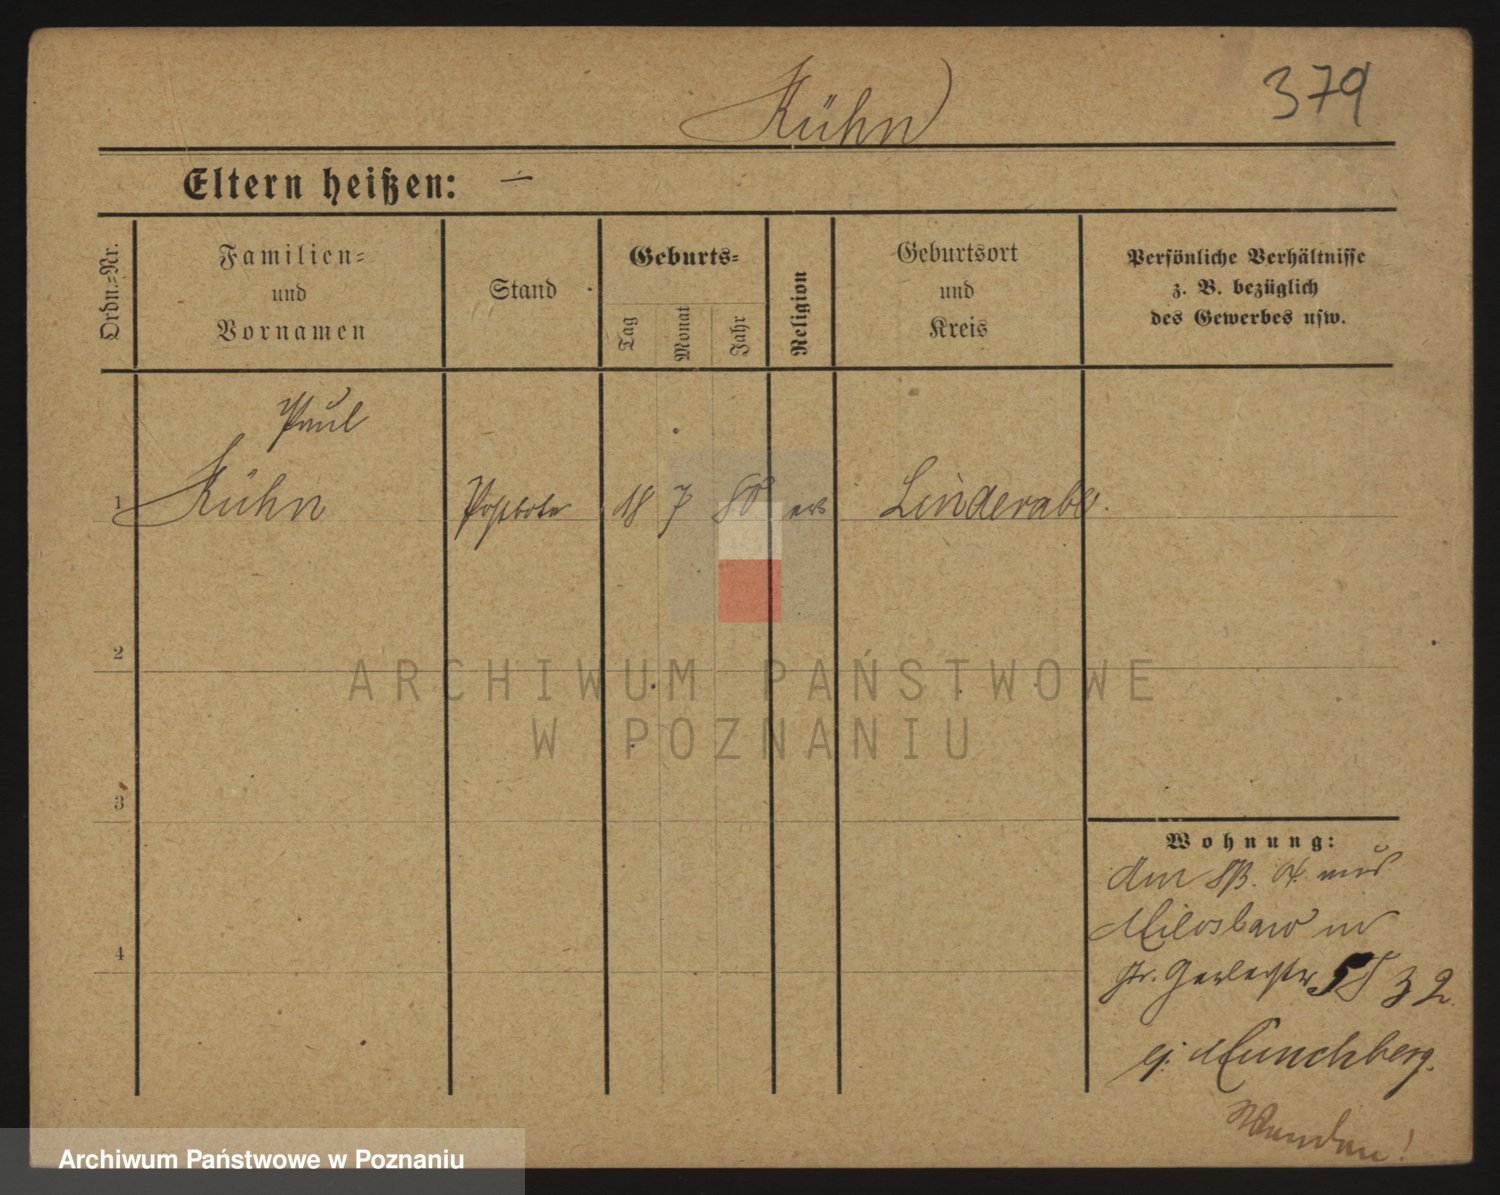 Kühn
379
Eltern heißen: —
Ordn.-Nr.
Familien-
und
Vornamen
Stand
Geburts-
Tag
Monat
Jahr
Religion
Geburtsort
und
Kreis
Persönliche Verhältnisse
z. B. bezüglich
des Gewerbes usw.
Paul
1 Kühn Postbote 18 7 80 ev Linderabe.
2
3
4
Wohnung:
Miloslaw
32
Munchberg.
Wenden!
ARCHIWUM PAŃSTWOWE
W POZNANIU
Archiwum Państwowe w Poznaniu